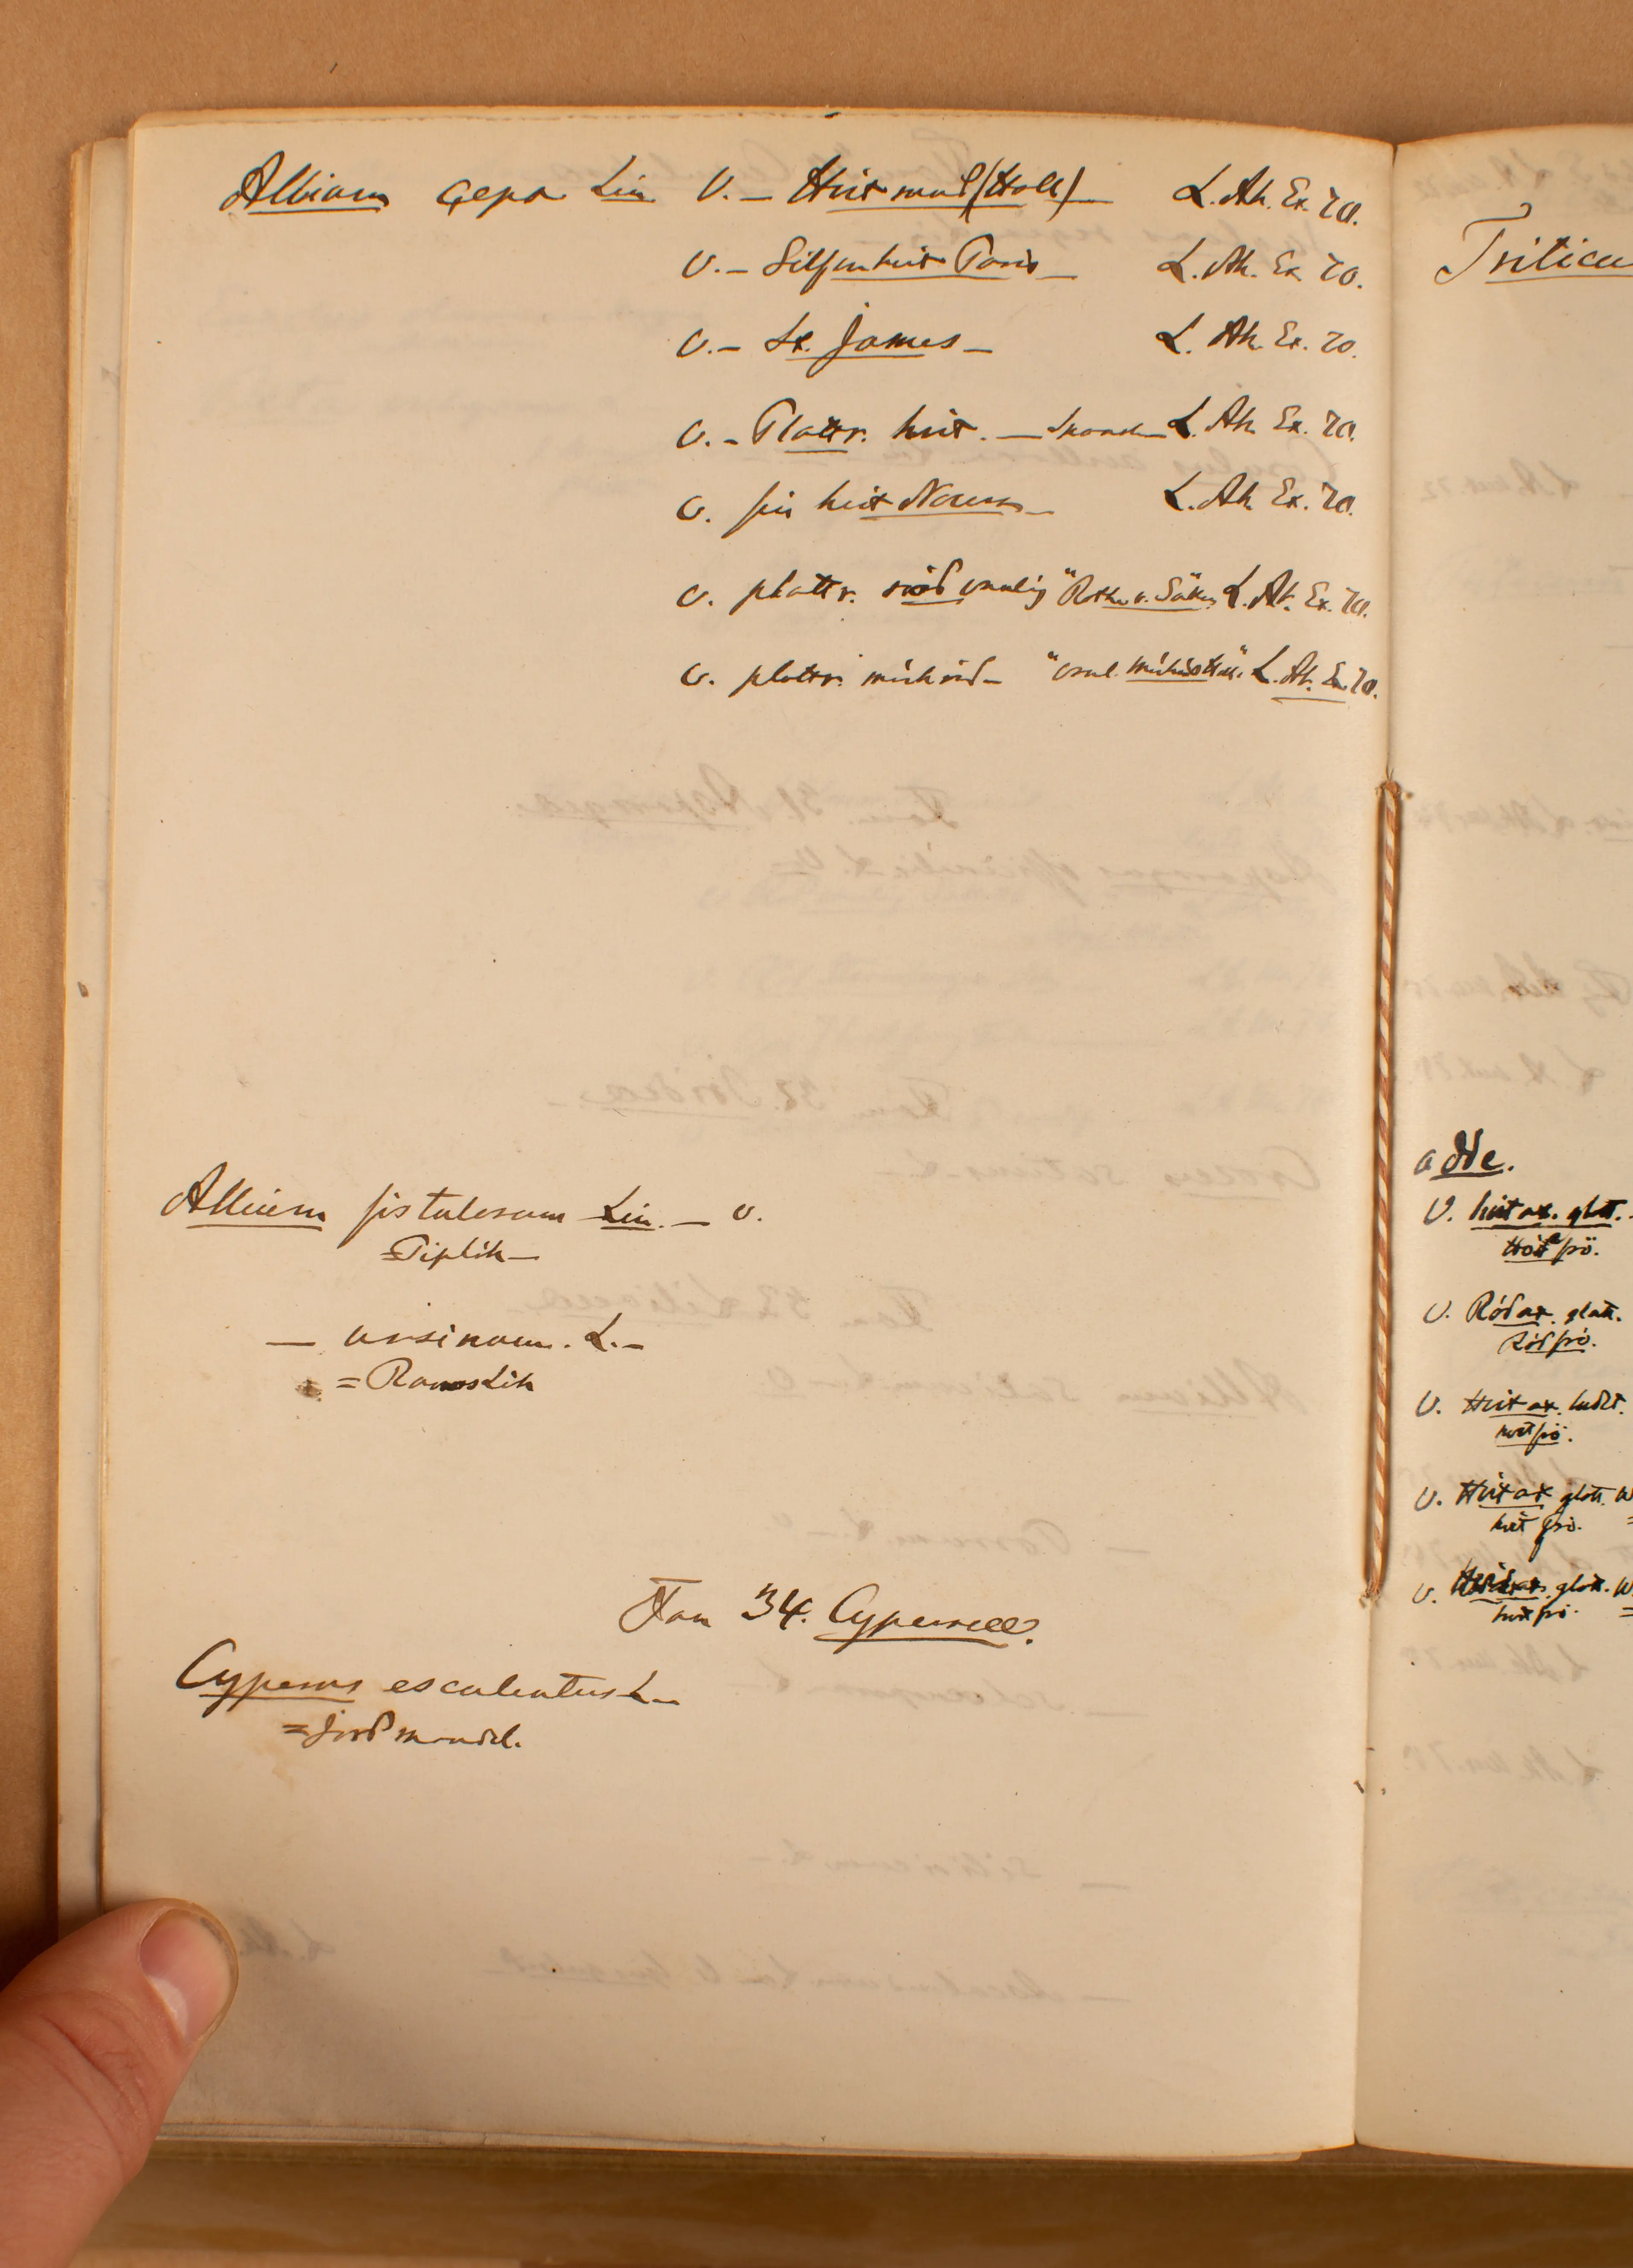 Allium Cepa Lin V. – Hvit rund (Holl) – L. Ak. Ex. 70.
V. – Silfverhvit Paris – L. Ak. Ex. 70.
V. – St. James – L. Ak. Ex. 70.
V. – Plattr. hvit. – L. Ak. Ex. 70.
V. fin hvit L. Ak. Ex. 70.
V. plattr. röd vanlig " L. Ak. Ex. 70.
V. plattr. mörkröd – " L. Ak. Ex. 70.
Allium fistulosum Lin. – V.
= Piplök –
– ursinum. L. –
= Ramslök
Fam 34. Cypereæ.
Cyperus esculentus L –
= Jordmandel.
Triticu
adde.
V. hvit ax. glatt.
V. Röd ax. glatt.
Röd frö.
V. Hvit ax. ludet.
hvit frö.
V. Hvit ax glatt. W
hvit frö.
V. glatt. W
hvit frö.